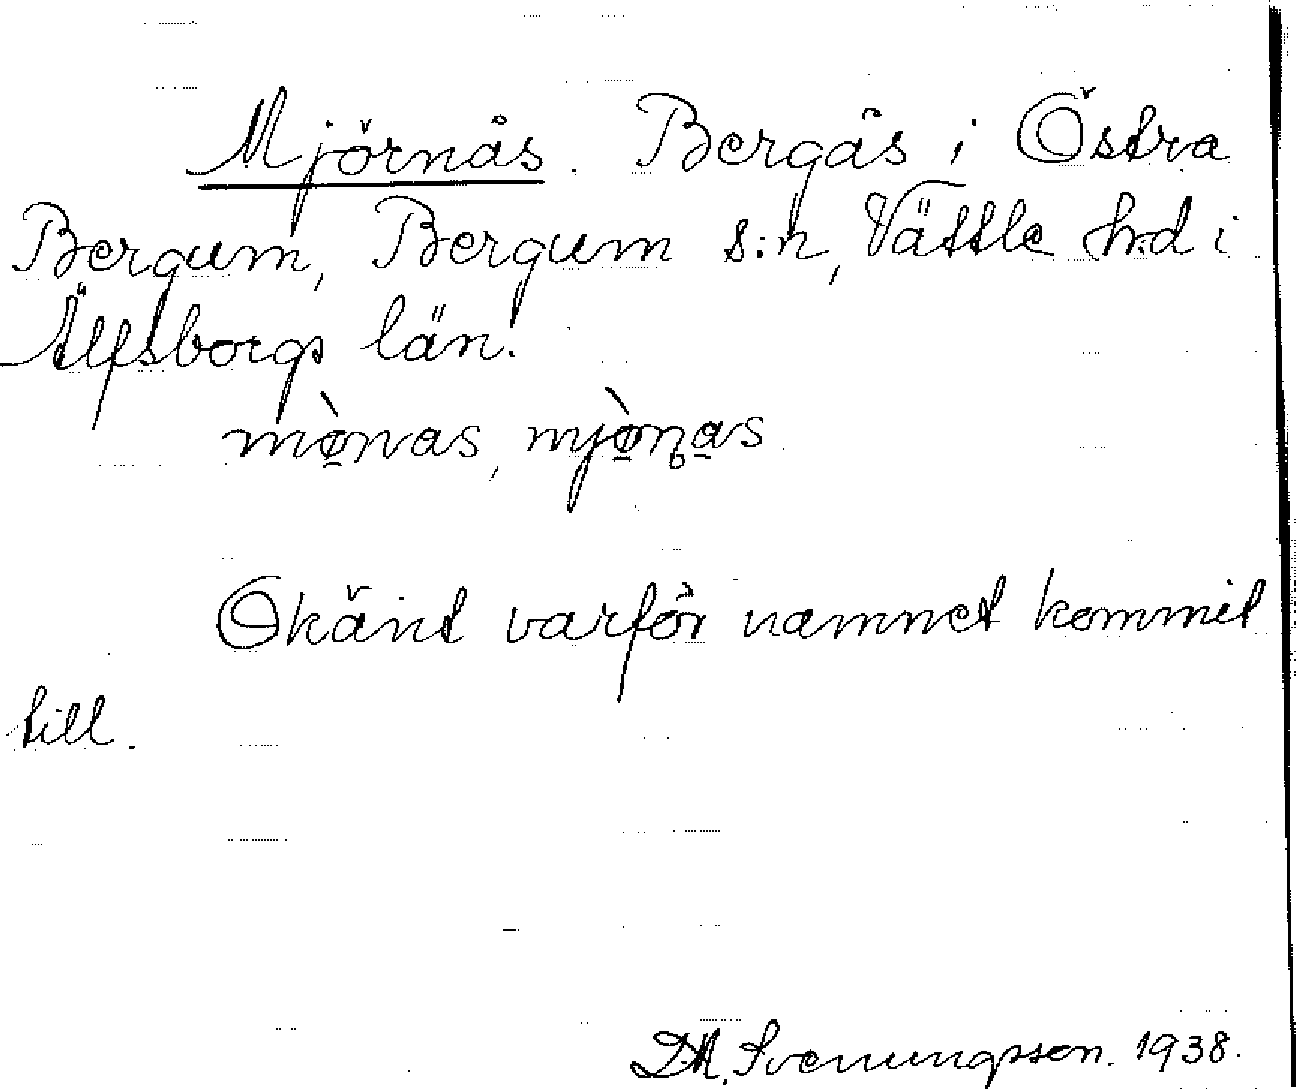 Mjörnås. Bergås i Östra
Bergum, Bergum s:n, Vättle h:d i
Älfsborgs län.
mø̀nas, mjø̀n̥as
Okänt varför namnet kommit
till.
D.A. Svenungsson. 1938.